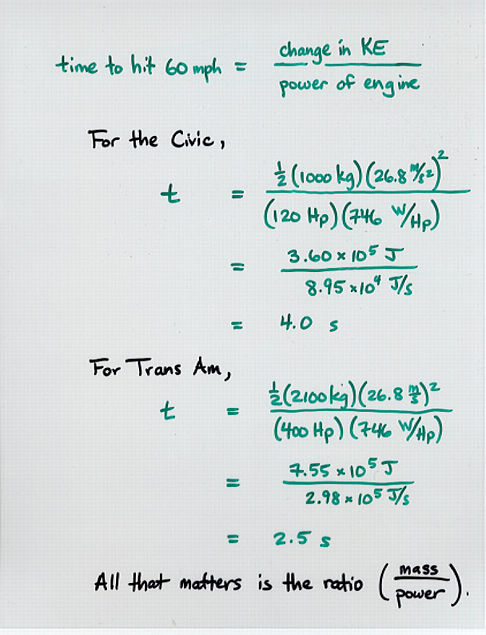 time to hit 60 mph = change in KE / power of engine
For the Civic,
t = ½ (1000 kg)(26.8 m/s²)² / (120 Hp)(746 W/Hp)
= 3.60 × 10⁵ J / 8.95 × 10⁴ J/s
= 4.0 s
For Trans Am,
t = ½ (2100 kg)(26.8 m/s)² / (400 Hp)(746 W/Hp)
= 7.55 × 10⁵ J / 2.98 × 10⁵ J/s
= 2.5 s
All that matters is the ratio (mass / power).